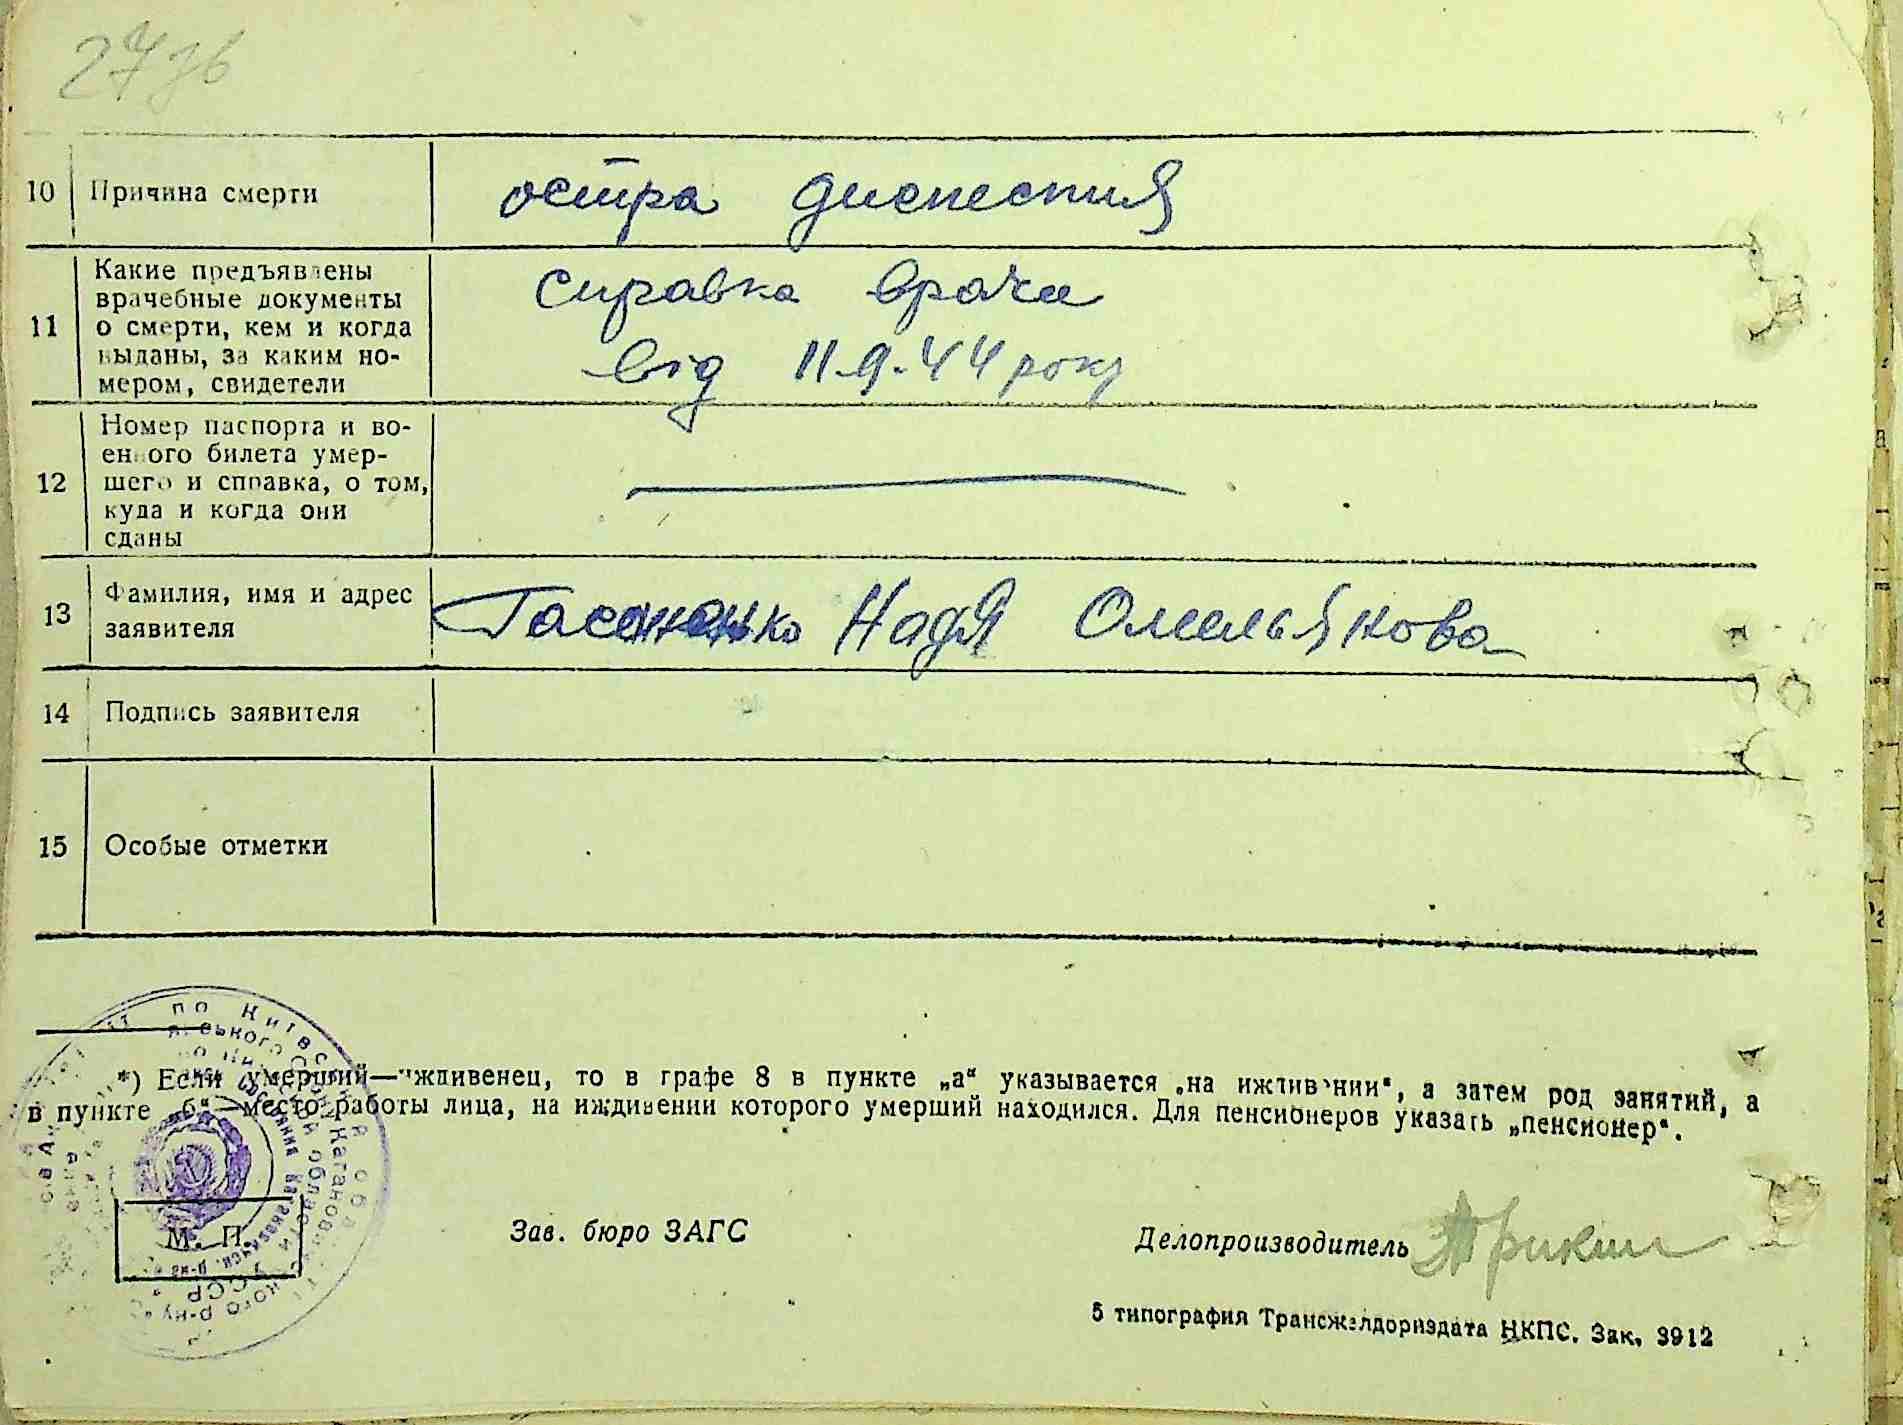 27зв
10 Причина смерти
остра диспепсия
11 Какие предъявлены
врачебные документы
о смерти, кем и когда
выданы, за каким но-
мером, свидетели
справка врача
від 11.9.44 року
12 Номер паспорта и во-
енного билета умер-
шего и справка, о том,
куда и когда они
сданы
13 Фамилия, имя и адрес
заявителя
Надя Омельянова
14 Подпись заявителя
15 Особые отметки
*) Если умерший—иждивенец, то в графе 8 в пункте „а“ указывается „на иждивении“, а затем род занятий, а
в пункте „б“—место работы лица, на иждивении которого умерший находился. Для пенсионеров указать „пенсионер“.
М. П.
Зав. бюро ЗАГС
Делопроизводитель
5 типография Трансжелдориздата НКПС. Зак. 3912